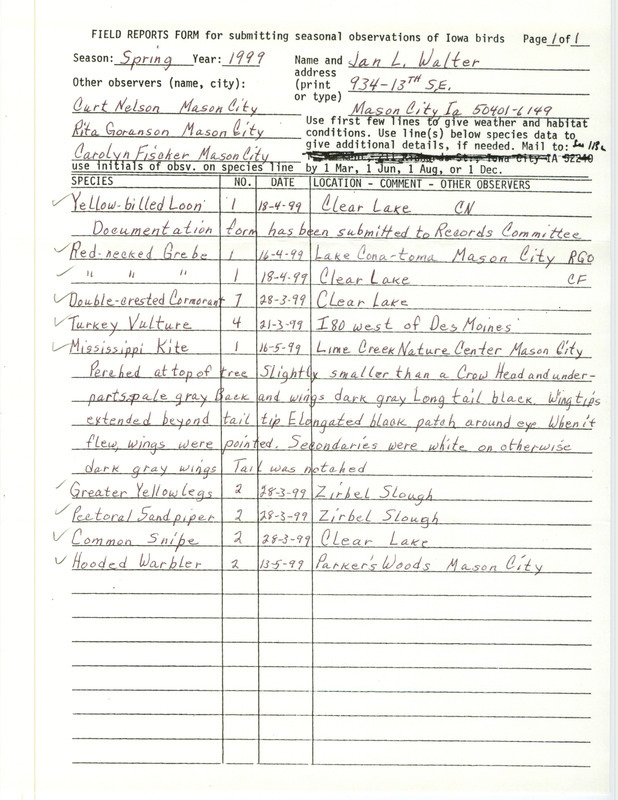 FIELD REPORTS FORM for submitting seasonal observations of Iowa birds Page 1 of 1
Season: Spring Year: 1999 Name and Jan L. Walter
address
Other observers (name, city): (print 934-13TH S.E.
or type)
Curt Nelson Mason City Mason City Ia 50401-6149
Use first few lines to give weather and habitat
Rita Goranson Mason City conditions. Use line(s) below species data to
give additional details, if needed. Mail to:
Carolyn Fischer Mason City Iowa City IA 52240
use initials of obsv. on species line by 1 Mar, 1 Jun, 1 Aug, or 1 Dec.
SPECIES NO. DATE LOCATION - COMMENT - OTHER OBSERVERS
✓ Yellow-billed Loon 1 18-4-99 Clear Lake CN
Documentation form has been submitted to Records Committee
✓ Red-necked Grebe 1 16-4-99 Lake Cona-toma Mason City RGO
✓ " " " 1 18-4-99 Clear Lake CF
✓ Double-crested Cormorant 7 28-3-99 Clear Lake
✓ Turkey Vulture 4 21-3-99 I80 west of Des Moines
✓ Mississippi Kite 1 16-5-99 Lime Creek Nature Center Mason City
Perched at top of tree Slightly smaller than a Crow Head and under-
parts pale gray Back and wings dark gray Long tail black. Wing tips
extended beyond tail tip Elongated black patch around eye When it
flew, wings were pointed. Secondaries were white on otherwise
dark gray wings Tail was notched
✓ Greater Yellowlegs 2 28-3-99 Zirbel Slough
✓ Pectoral Sandpiper 2 28-3-99 Zirbel Slough
✓ Common Snipe 2 28-3-99 Clear Lake
✓ Hooded Warbler 2 13-5-99 Parker's Woods Mason City